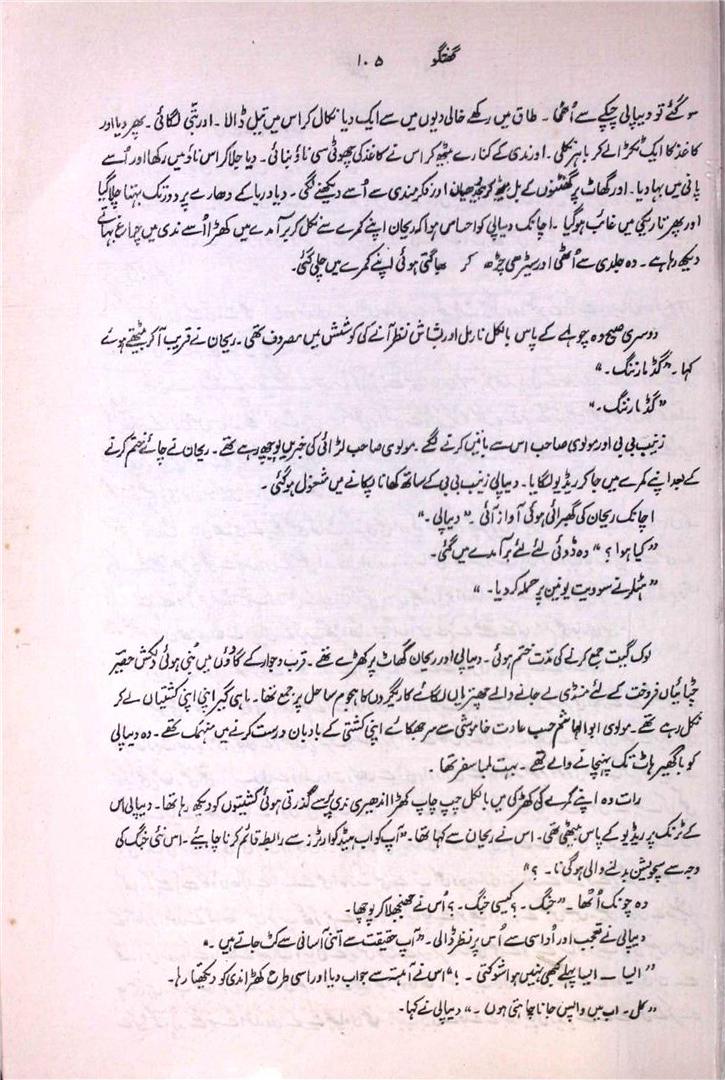 گفتگو ۱۰۵
سو گئے تو دیپالی چپکے سے اُٹھی۔ طاق میں رکھے خالی دیوں میں سے ایک دیا نکال کر اس میں تیل ڈالا۔ اور بتّی لگائی۔ پھر دیا اور
کاغذ کا ایک ٹکڑا لے کر باہر نکلی۔ اور ندی کے کنارے بیٹھ کر اس نے کاغذ کی چھوٹی سی ناؤ بنائی۔ دیا جلا کر اس ناؤ میں رکھا اور اُسے
پانی میں بہا دیا۔ اور گھاٹ پر گھٹنوں کے بل بیٹھ کر دھیان اور فکرمندی سے اُسے دیکھنے لگی۔ دیا دریا کے دھارے پر دور تک بہتا چلا گیا
اور پھر تاریکی میں غائب ہو گیا۔ اچانک دیپالی کو احساس ہوا کہ ریحان اپنے کمرے سے نکل کر برآمدے میں کھڑا اُسے ندی میں چراغ بہاتے
دیکھ رہا ہے۔ وہ جلدی سے اُٹھی اور سیڑھی چڑھ کر بھاگتی ہوئی اپنے کمرے میں چلی گئی۔
دوسری صبح وہ چولہے کے پاس بالکل نارمل اور بشاش نظر آنے کی کوشش میں مصروف تھی۔ ریحان نے قریب آ کر بیٹھتے ہوئے
کہا۔ ”گڈ مارننگ۔“
”گڈ مارننگ۔“
زینب بی بی اور مولوی صاحب اس سے باتیں کرنے لگے۔ مولوی صاحب لڑائی کی خبریں پوچھ رہے تھے۔ ریحان نے چائے ختم کرنے
کے بعد اپنے کمرے میں جا کر ریڈیو لگایا۔ دیپالی زینب بی بی کے ساتھ کھانا پکانے میں مشغول ہو گئی۔
اچانک ریحان کی گھبرائی ہوئی آواز آئی۔ ”دیپالی۔“
”کیا ہوا؟“ وہ ڈوئی لئے لئے برآمدے میں گئی۔
”ہٹلر نے سوویت یونین پر حملہ کر دیا۔“
لوک گیت جمع کرنے کی مدّت ختم ہوئی۔ دیپالی اور ریحان گھاٹ پر کھڑے تھے۔ قرب و جوار کے گاؤں میں بُنی ہوئی دلکش حقیر
چٹائیاں فروخت کے لئے منڈی لے جانے والے چھتریاں لگائے کاریگروں کا ہجوم ساحل پر جمع تھا۔ ماہی گیر اپنی اپنی کشتیاں لے کر
نکل رہے تھے۔ مولوی ابوالہاشم حسب عادت خاموشی سے سر جھکائے اپنی کشتی کے بادبان درست کرنے میں منہمک تھے۔ وہ دیپالی
کو باگھیر ہاٹ تک پہنچانے والے تھے۔ بہت لمبا سفر تھا۔
رات وہ اپنے کمرے کی کھڑکی میں بالکل چپ چاپ کھڑا اندھیری ندی پر سے گذرتی ہوئی کشتیوں کو دیکھ رہا تھا۔ دیپالی اس
کے ٹرنک پر ریڈیو کے پاس بیٹھی تھی۔ اس نے ریحان سے کہا تھا۔ ”آپ کو اب ہیڈ کوارٹرز سے رابطہ قائم کرنا چاہیئے۔ اس نئی جنگ کی
وجہ سے سچویشن بدلنے والی ہو گی نا۔؟“
وہ چونک اُٹھا۔ ”جنگ۔؟ کیسی جنگ۔؟ اُس نے جھنجھلا کر پوچھا۔
دیپالی نے تعجب اور اُداسی سے اُس پر نظر ڈالی۔ ”آپ حقیقت سے اتنی آسانی سے کٹ جاتے ہیں۔“
”ایسا — ایسا پہلے کبھی نہیں ہوا شوکتی۔!“ اس نے آہستہ سے جواب دیا اور اسی طرح کھڑا ندی کو دیکھتا رہا۔
”کل۔ اب میں واپس جانا چاہتی ہوں۔“ دیپالی نے کہا۔